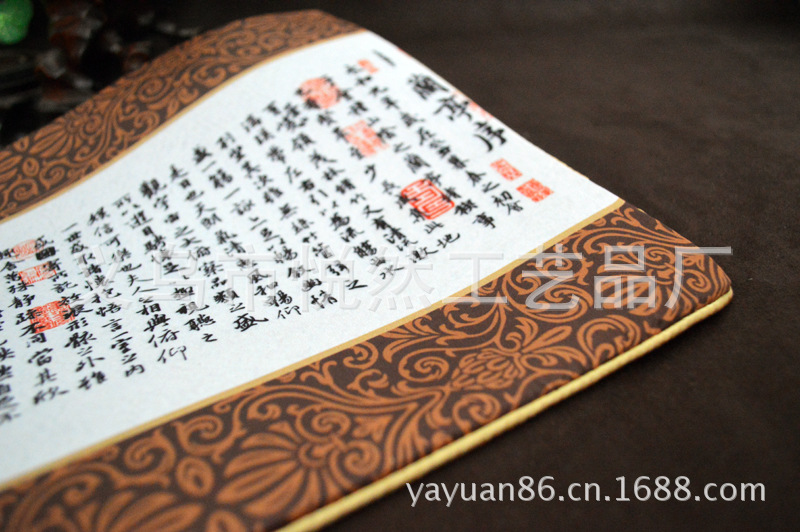 蘭亭序
永和九年歲在癸丑暮春之初會
山陰之蘭亭脩禊事
少長咸集此地
峻領茂林脩竹又有清流激
湍暎帶左右引以為流觴曲水
列坐其次雖無絲竹管弦之
盛一觴一詠亦足以暢敘幽情
是日也天朗氣清惠風和暢仰
觀宇宙之大俯察品類之盛
所以遊目騁懷足以極視聽之
娛信可樂也夫人之相與俯仰
一世或取諸懷抱悟言一室之內
所託放浪形骸之外雖
靜躁不同當其欣
义乌市悦然工艺品厂
yayuan86.cn.1688.com